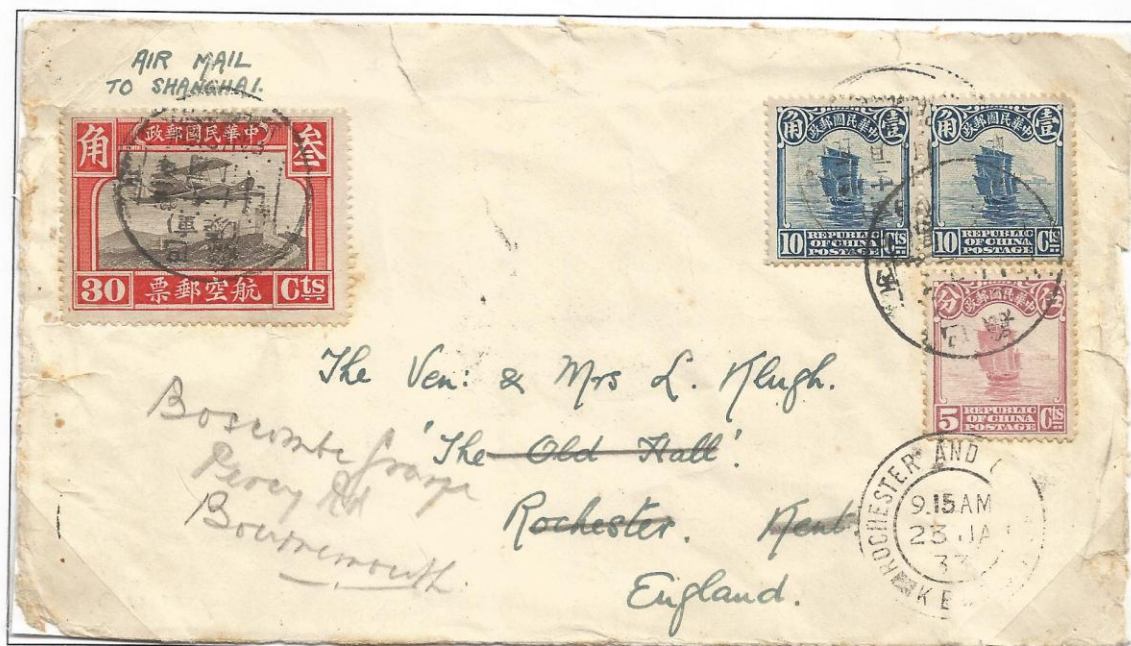 AIR MAIL
TO SHANGHAI.
中華民國郵政
角 叁
30 航空郵票 Cts
角 中華民國郵政 壹
10 REPUBLIC OF CHINA POSTAGE Cts
角 中華民國郵政 壹
10 REPUBLIC OF CHINA POSTAGE Cts
分 中華民國郵政 伍
5 REPUBLIC OF CHINA POSTAGE Cts
The Ven: & Mrs L. Klugh.
'The Old Hall'.
Rochester. Kent.
England.
Boscombe Grange
Percy Rd
Bournemouth.
ROCHESTER AND
9.15AM
23 JA
33
KE